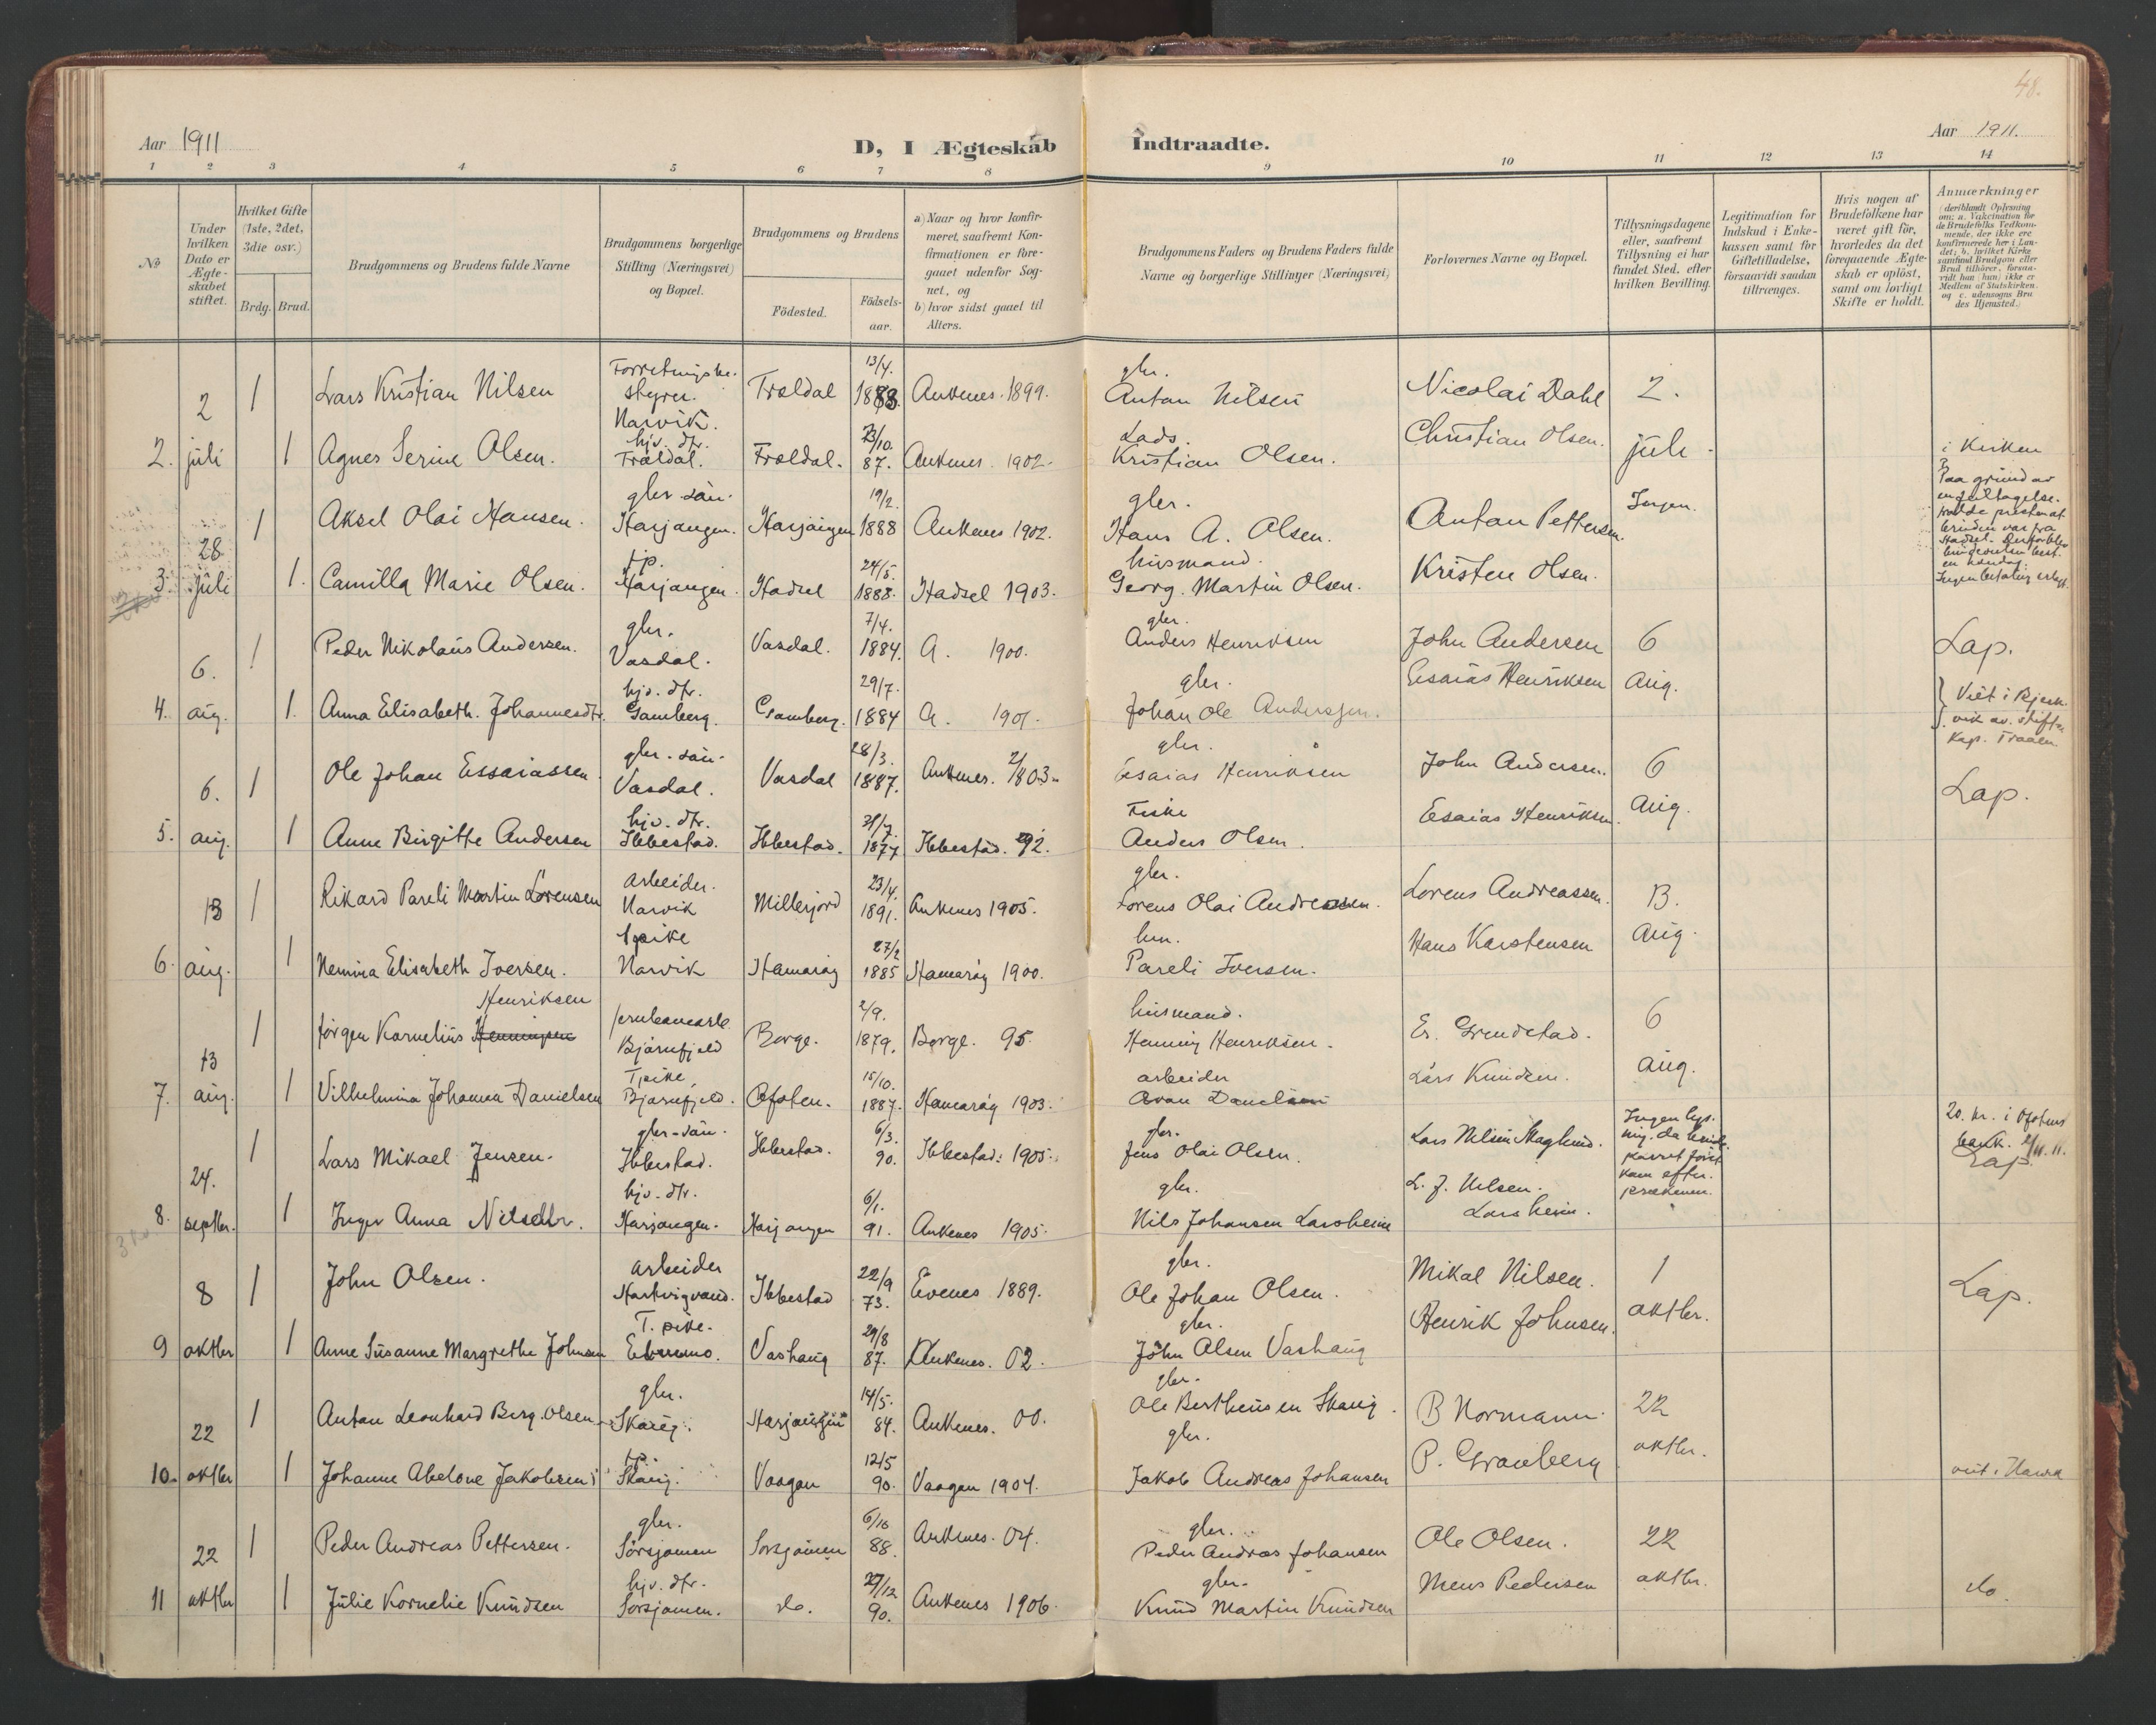 48.
Aar 1911
D, I Ægteskab Indtraadte.
Aar 1911.
1 2 3 4 5 6 7 8 9 10 11 12 13 14
No
Under hvilken Dato er Ægteskabet stiftet.
Hvilket Gifte (1ste, 2det, 3die osv.)
Brdg. Brud.
Brudgommens og Brudens fulde Navne
Brudgommens borgerlige Stilling (Næringsvei) og Bopæl.
Brudgommens og Brudens
Födested.
Födsels-aar.
a) Naar og hvor konfirmeret, saafremt Konfirmationen er foregaaet udenfor Sognet, og
b) hvor sidst gaaet til Alters.
Brudgommens Faders og Brudens Faders fulde Navne og borgerlige Stillinger (Næringsvei)
Forlovernes Navne og Bopæl.
Tillysningsdagene eller, saafremt Tillysning ei har fundet Sted, efter hvilken Bevilling.
Legitimation for Indskud i Enkekassen samt for Giftetilladelse, forsaavidt saadan tiltrænges.
Hvis nogen af Brudefolkene har været gift för, hvorledes da det foregaaende Ægteskab er oplöst, samt om lovligt Skifte er holdt.
Anmærkninger (deriblandt Oplysning om: a. Vakcination for de Brudefolks Vedkommende, der ikke ere konfirmerede her i Landet; b. hvilket Kirkesamfund Brudgom eller Brud tilhörer, forsaavidt han (hun) ikke er Medlem af Statskirken. og c. udensogns Brudes Hjemsted.)
2 1 Lars Kristian Nilsen Forretningsbestyrer. Narvik. Trældal 13/4. 1883. Ankenes. 1899. gbr. Anton Nilsen Nicolai Dahl 2.
2. juli 1 Agnes Serine Olsen. hjv. dtr. Trældal. Trældal. 23/10. 87. Ankenes. 1902. Lads. Kristian Olsen. Christian Olsen. juli. i Kirken
28 1 Aksel Olai Hansen. gbr. sön. Harjangen. Harjangen 19/2. 1888 Ankenes 1902. gbr. Hans A. Olsen. Anton Pettersen. Ingen. Paa grund av
3. juli 1. Camilla Marie Olsen. tp. Harjangen. Hadsel 24/5. 1888. Hadsel 1903. husmand. Georg. Martin Olsen. Kristen Olsen.
6. 1 Peder Nikolaus Andersen. gbr. Vasdal. Vasdal. 7/4. 1884. A. 1900. gbr. Anders Henriksen John Andersen 6 Lap.
4. aug. 1. Anna Elisabeth. Johannesdtr. hjv. dtr. Gamberg. Gamberg. 29/7. 1884 A. 1901. gbr. Johan Ole Anderssen. Esaias Henriksen aug. Viet i Bjerkvik av. stiftskap. Traaen.
6. 1 Ole Johan Essaiassen gbr. sön. Vasdal. Vasdal 28/3. 1887. Ankenes. 1903. gbr. Esaias Henriksen John Andersen. 6 Lap.
5. aug. 1 Anne Birgitte Andersen hjv. dtr. Ibbestad. Ibbestad. 31/7. 1877 Ibbestad. 92. Fisker Anders Olsen. Esaias Henriksen. aug.
13 1 Rikard Pareli Martin Lorensen arbeider. Narvik Millerjord 23/4. 1891. Ankenes 1905. gbr. Lorens Olai Andreassen. Lorens Andreassen. 13.
6. aug. 1 Nemina Elisabeth Iversen. tpike Narvik Hamaröy 27/2 1885 Hamaröy 1900. Pareli Iversen. Hans Karstensen aug.
Henriksen
13 1 Jörgen Kornelius Henningsen jernbanearb. Björnfjeld Borge. 2/9. 1879. Borge. 95. husmand. Henning Henriksen. Er. Grindstad. 6
7. aug. 1 Vilhelmina Johanna Danielsen Tpike Björnfjeld. Ofoten. 15/10. 1887. Hamaröy 1903. arbeider Danielsen Lars Knudsen. aug.
24. 1 Lars Mikael Jensen. gbr. sön. Ibbestad. Ibbestad. 6/3. 90. Ibbestad: 1905. gbr. Jens Olai Olsen. Lars Nilsen Skaglund. 20. kr. i Ofotens bank. Lap.
8. septbr. 1 Inger Anna Nilsdtr. hjv. dtr. Harjangen. Harjangen 6/1. 91. Ankenes 1905. gbr. Nils Johansen Larsheim L. J. Nilsen. Larsheim.
8 1 John Olsen. arbeider Hartvigvand. Ibbestad 22/9 73. Evenes 1889. gbr. Ole Johan Olsen. Mikal Nilsen. 1 Lap.
9 oktbr 1 Anne Susanne Margrethe Johnsen T. pike. Elvemo. Vashaug 29/8 87. Ankenes. 02. gbr. John Olsen Vashaug Henrik Johnsen. oktbr.
22 1 Anton Leonhard Berg. Olsen gbr. Skaug. Harjangen 14/5. 84. Ankenes. 00. gbr. Ole Bertheussen Skaug. B Normann. 22
10. oktbr 1 Johanne Abelone Jakobsen tp. Skaug. Vaagan 12/5 90. Vaagan 1904. gbr. Jakob Andreas Johansen P. Granberg oktbr.
22 1 Peder Andreas Pettersen. gbr. Sörsjomen Sorsjomen 6/10 88. Ankenes. 04. gbr. Peder Andreas Johansen Ole Olsen. 22
11 oktbr 1 Julie Kornelie Knudsen hjv. dtr. Sorsjomen. do. 27/12 90. Ankenes 1906. gbr. Knud Martin Knudsen Mens Pedersen oktbr. do.